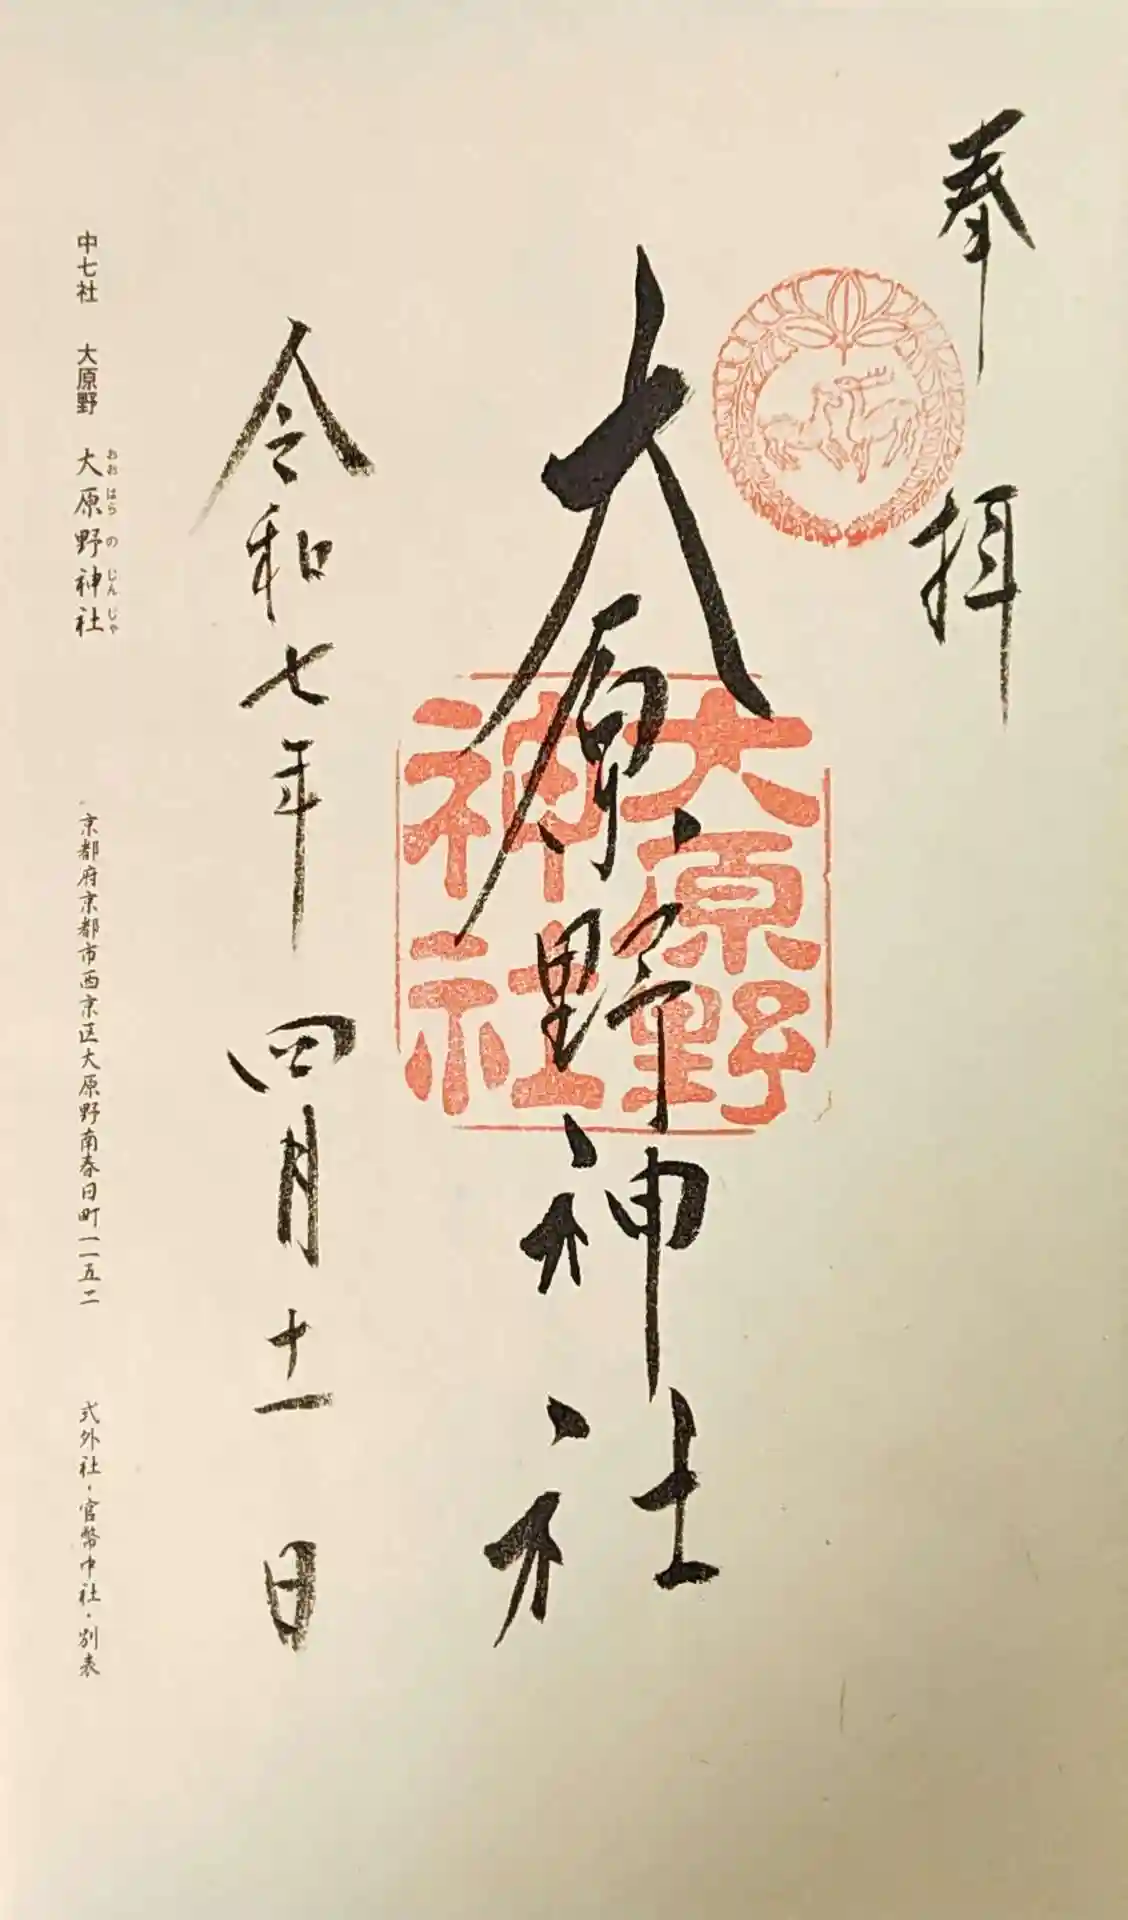 奉拝
大原野神社
大原野
神社
令和七年四月十一日
中七社 大原野 大原野神社
おおはらのじんじゃ
京都府京都市西京区大原野南春日町一一五二
式外社・官幣中社・別表